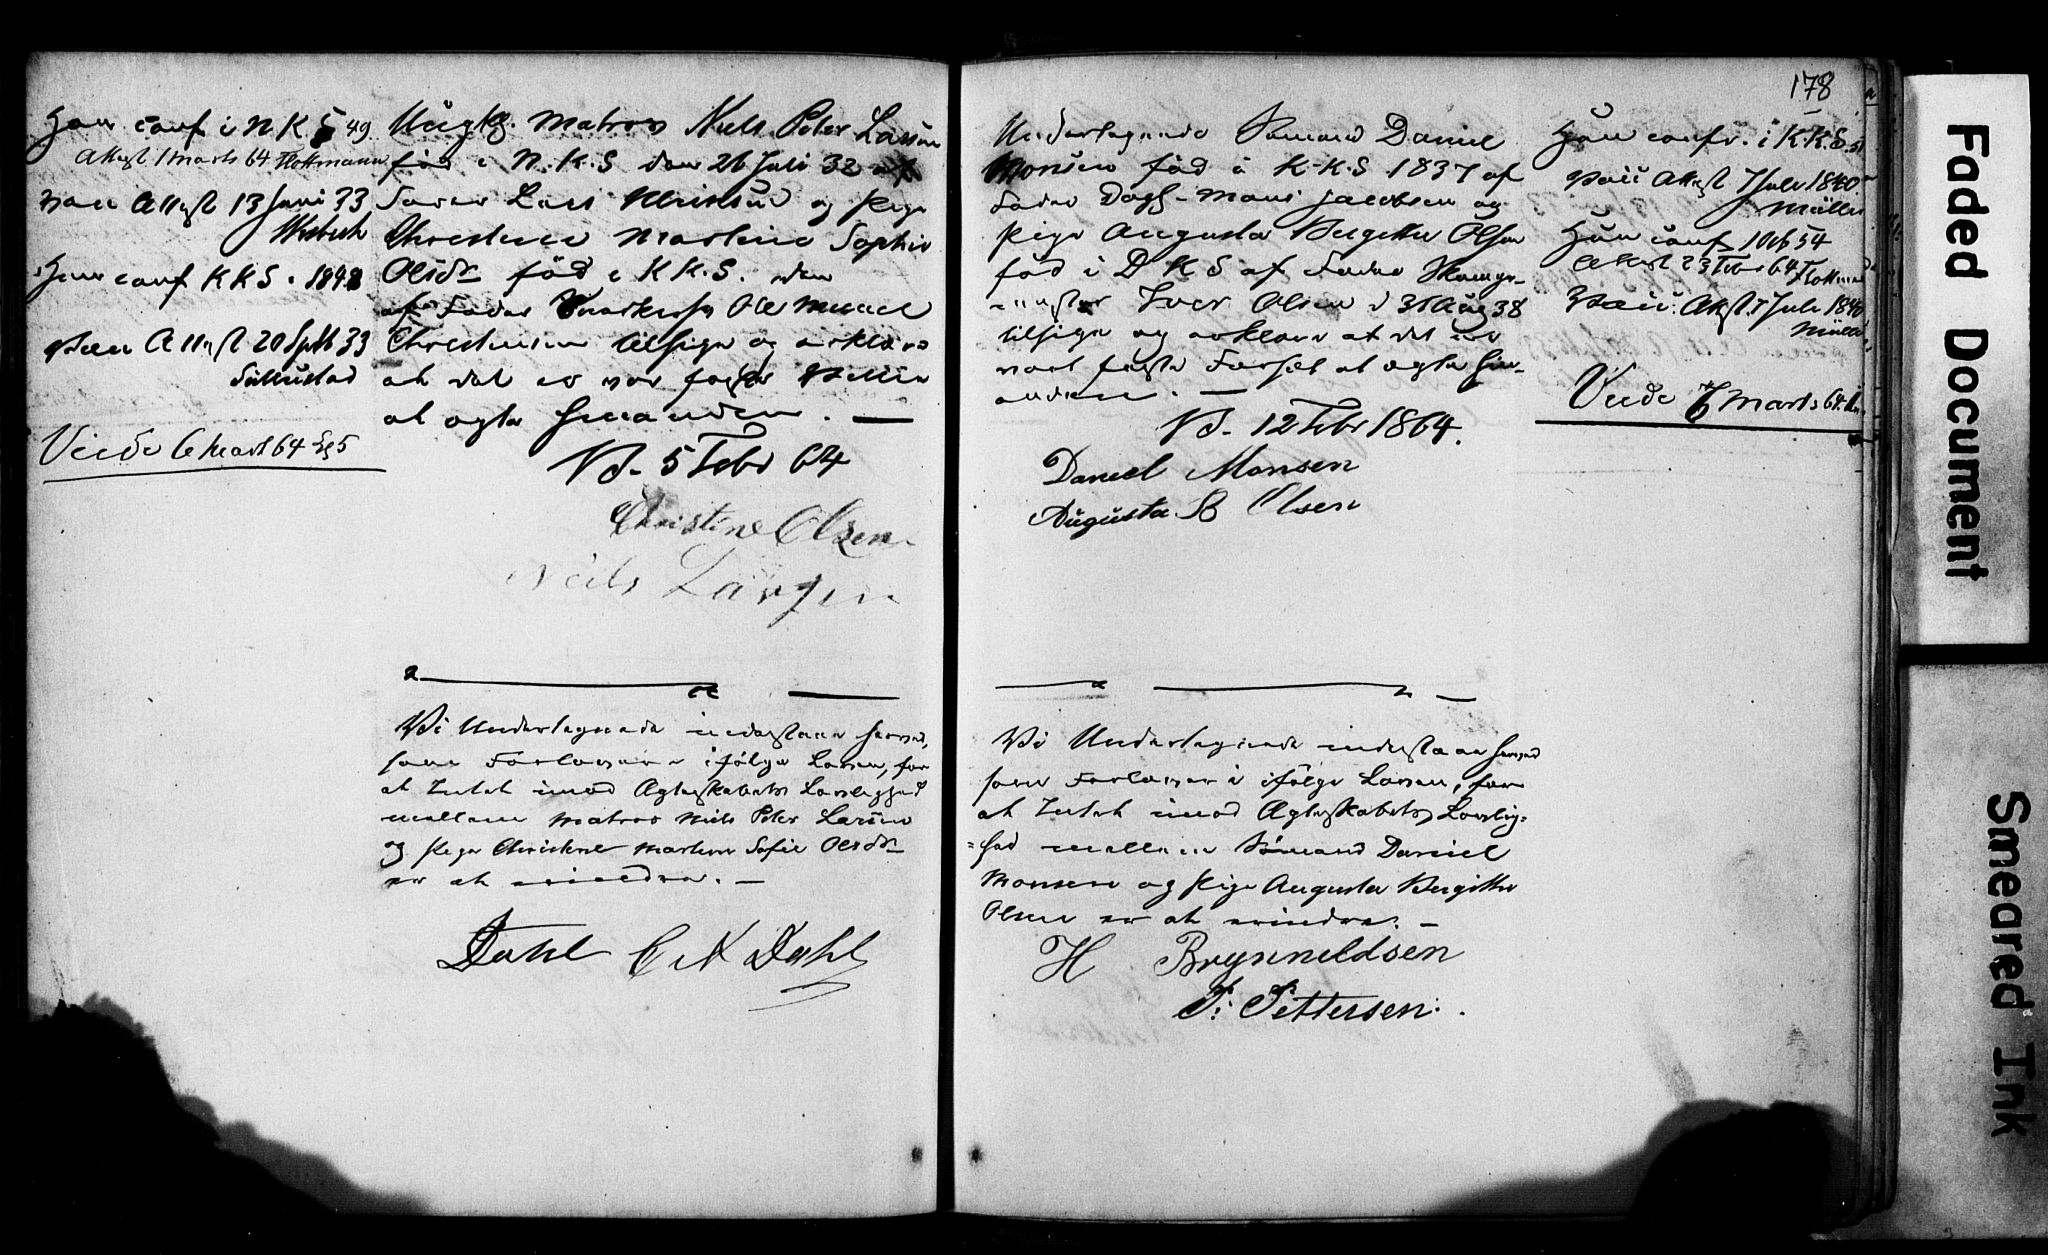 Han conf i N K S 49
Attest 1 marts 64 Flottmann
Vacc Attest 13 Juni 33
Hun conf K K S. 1848
Vacc Attest 20 Septb 33
Viede 6 Mart 64
Ungk. Matros Niels Peter Larsen
fød i N. K. S den 26 Juli 32 af
Fader Lars og Pige
Christine Martine Sophie
Olsdr fød i K K. S. den
af Fader Ole
Christensen tilsige og erklære
at det er vor faste Villie
at egte hinanden. —
N.B. 5 Febr 64
Christine Olsen
Neils Larsen
Vi Undertegnede indestaae herved,
som Forlovere ifølge Loven, for
at Intet imod Ægteskabets Lovlighed
mellem Matros Niels Peter Larsen
og Pige Christine Martine Sofie Olsdr
er at erindre. —
Dahl C A Dahl
178
Undertegnede Sømand Daniel
Monsen fød i K-K-S 1837 af
Fader Mons Jacobsen og
Pige Augusta Bergitte Olsen
fød i D K S af Fader
Iver Olsen d 31 Aug 38
tilsige og erklære at det er
vort faste Forsæt at ægte hin-
anden. —
N.B. 12 Febr 1864.
Daniel Monsen
Augusta B Olsen
Vi Undertegnede indestaae herved
som Forlovere i ifølge Loven, for
at Intet imod Ægteskabets Lovlig=
=hed mellem Sømand Daniel
Monsen og Pige Augusta Bergitte
Olsen er at erindre. —
H Brynnildsen
P: Pettersen.
Han confr. i K. K. S. 51
Vacc Attest 7 Juli 1840
Müller
Hun conf 1 Octb 54
Attest 23 Febr 64 Flottmann
Vacc. Attest 7 Juli 1840
Müller
Viede 6 Marts 64
Faded Document
Smeared Ink